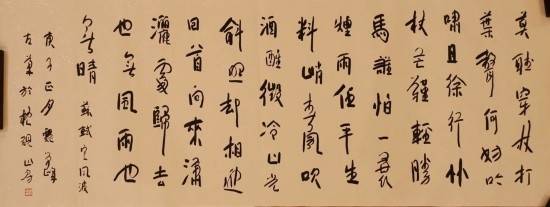 莫聽穿林打
葉聲何妨吟
嘯且徐行竹
杖芒鞋輕勝
馬誰怕一蓑
煙雨任平生
料峭春風吹
酒醒微冷山頭
斜照却相迎
回首向來瀟
灑處歸去
也無風雨也
無晴 蘇軾定風波
庚子正月